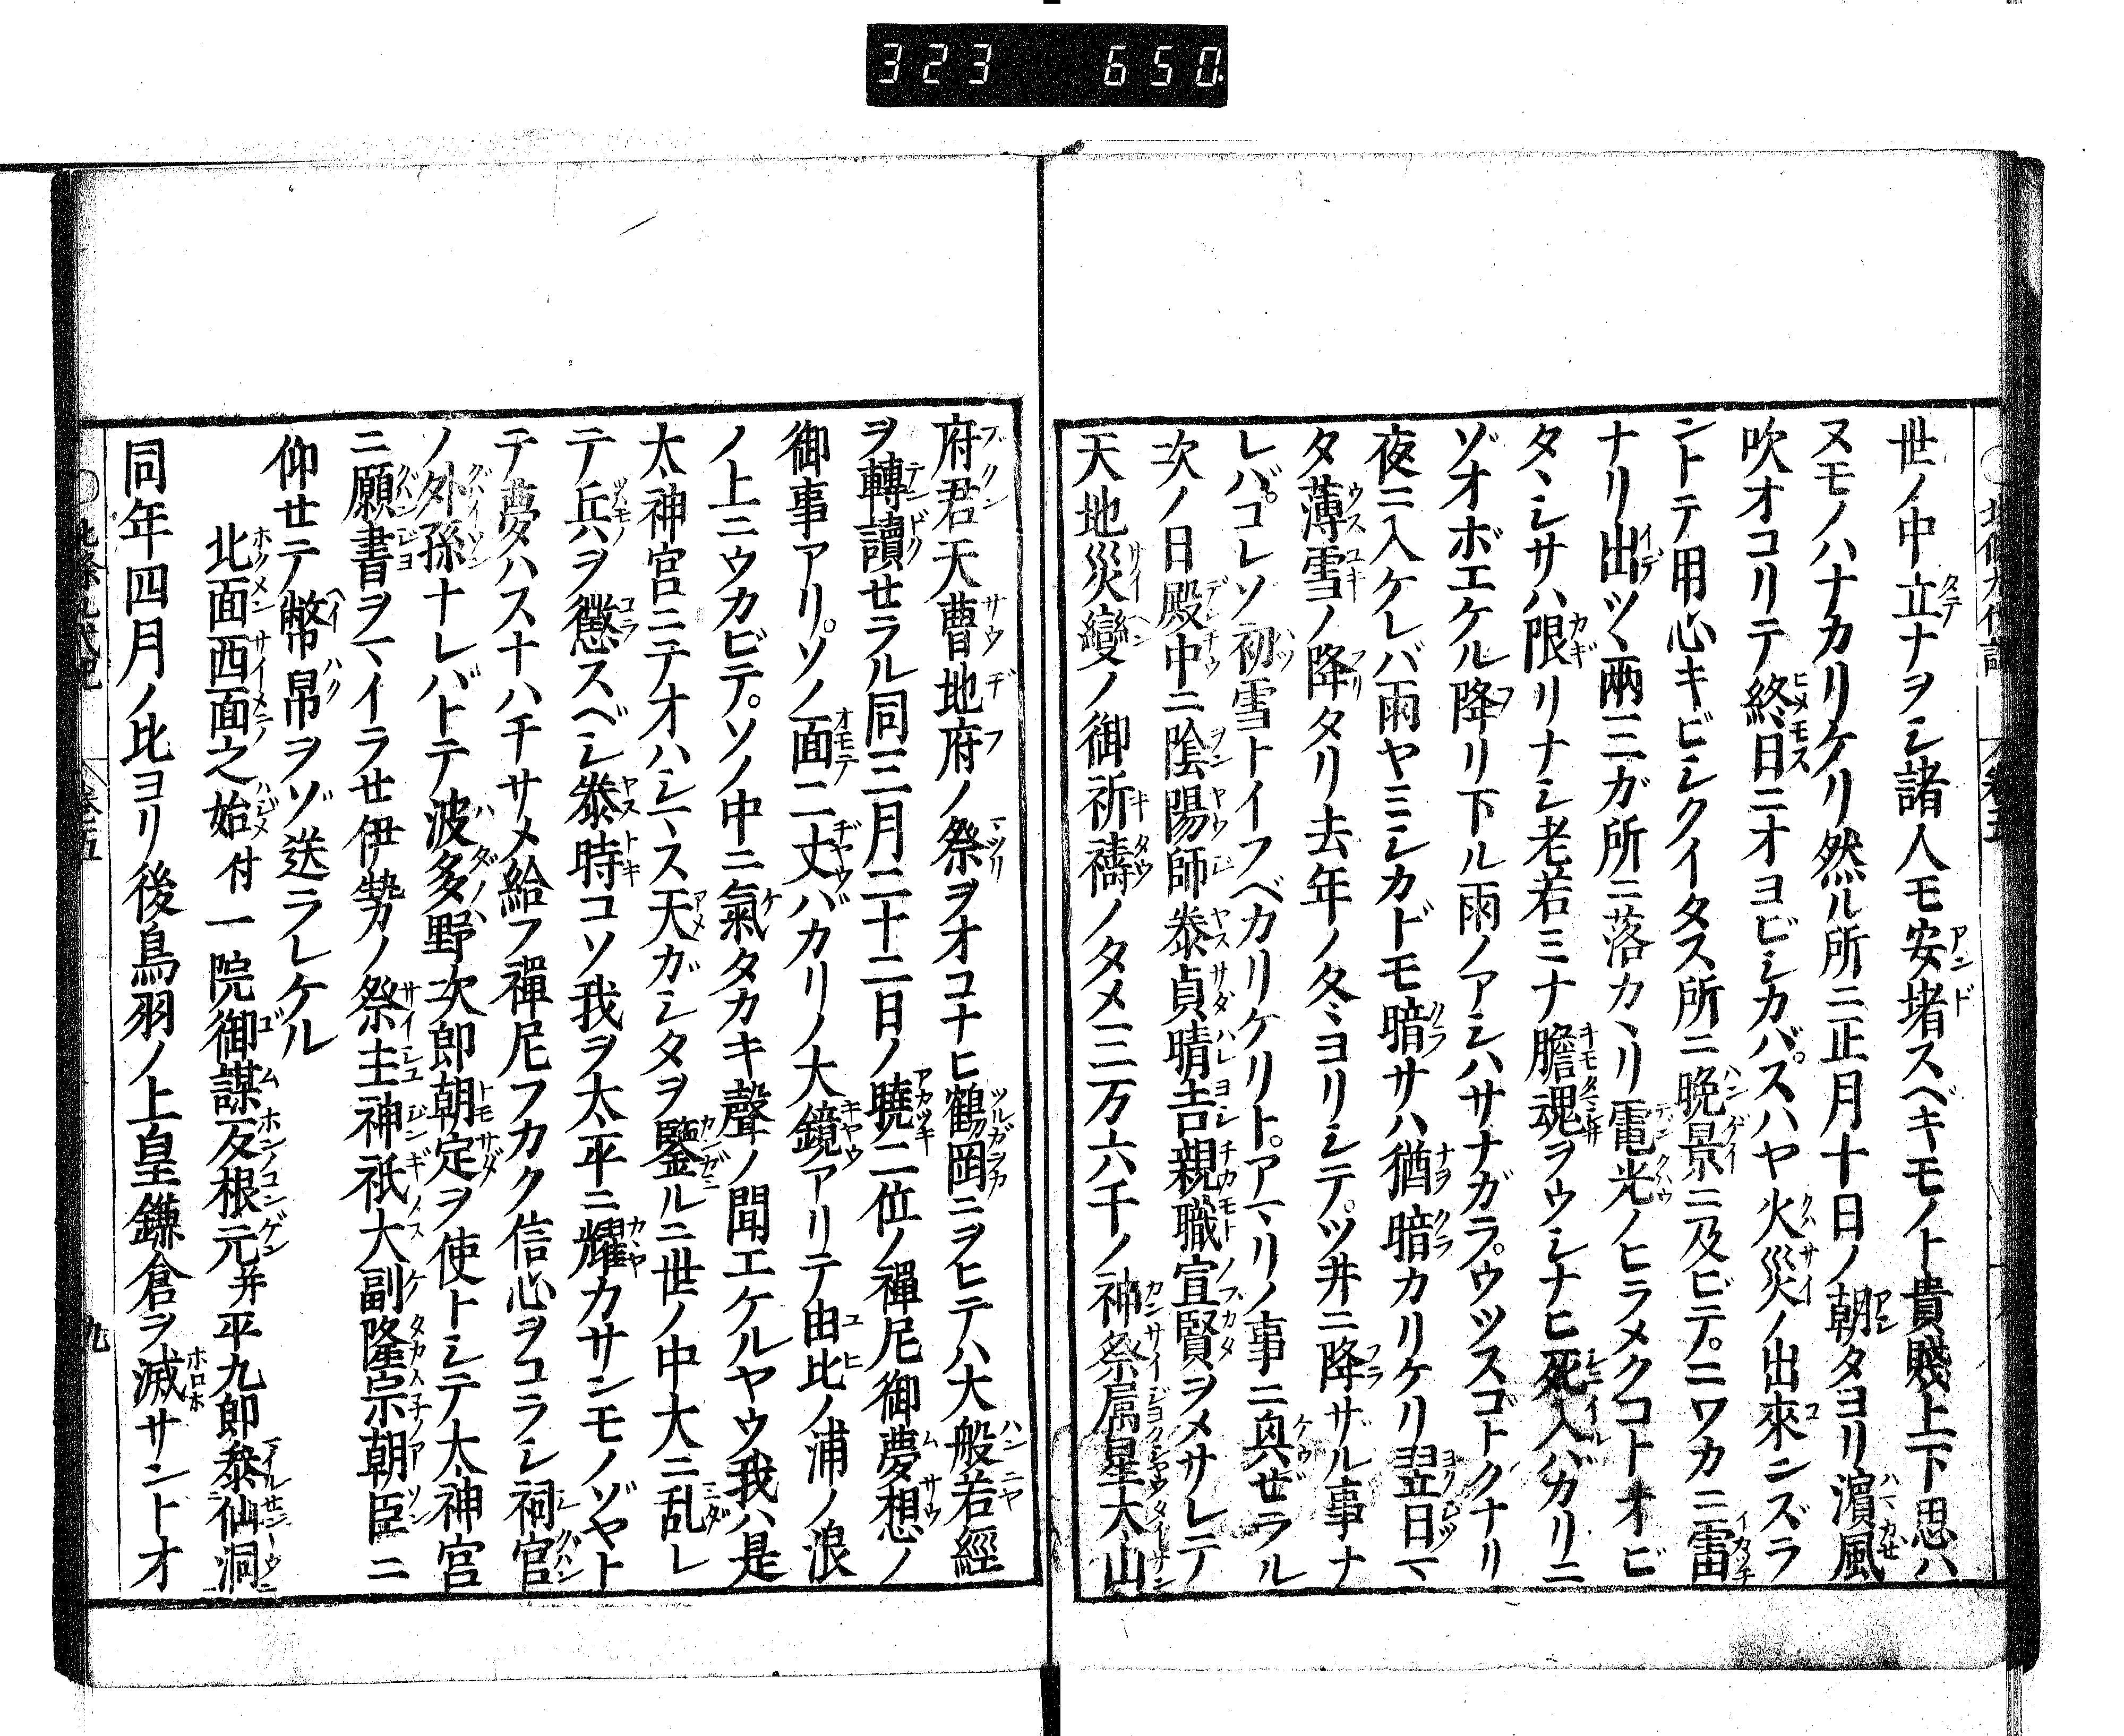 323 650
世ノ中立ナヲシ諸人モ安堵スベキモノト貴賤上下思ハ
ヌモノハナカリケリ然ル所ニ正月十日ノ朝タヨリ濱風
吹オコリテ終日ニオヨビシカバ。スハヤ火災ノ出來ンズラ
ントテ用心キビシクイタス所ニ晩景ニ及ビテ。ニワカニ雷
ナリ出ツヽ兩三ガ所ニ落カヽリ電光ノヒラメクコトオビ
タヽシサハ限リナシ老若ミナ膽魂ヲウシナヒ死入バカリニ
ゾオボエケル降リ下ル雨ノアシハサナガラ。ウツスゴトクナリ
夜ニ入ケレバ雨ヤミシカドモ暗サハ猶暗カリケリ翌日マ
タ薄雪ノ降タリ去年ノ冬ミヨリシテ。ツ井ニ降ザル事ナ
レバ。コレソ初雪トイフベカリケリト。アマリノ事ニ真ゼラル
次ノ日殿中ニ陰陽師泰貞晴吉親職宣賢ヲメサレテ
天地災變ノ御祈禱ノタメ三万六千ノ神祭属星大山
府君天曹地府ノ祭ヲオコナヒ鶴岡ニヲヒテハ大般若經
ヲ轉讀せラル同三月二十二日ノ曉二位ノ禪尼御夢想ノ
御事アリ。ソノ面二丈バカリノ大鏡アリテ由比ノ浦ノ浪
ノ上ニウカビテ。ソノ中ニ氣タカキ聲ノ聞エケルヤウ我ハ是
太神宮ニテオハシマス天ガシタヲ鑒ルニ世ノ中大ニ乱レ
テ兵ヲ懲スベシ泰時コソ我ヲ太平ニ耀カサンモノゾヤト
テ夢ハスナハチサメ給フ禪尼フカク信心ヲコラシ祠官
ノ外孫ナレバトテ波多野次郎朝定ヲ使トシテ太神宮
ニ願書ヲマイラせ伊勢ノ祭主神祇大副隆宗朝臣ニ
仰せテ幣帛ヲゾ送ラレケル
北面西面之始付一院御謀反根元并平九郎參仙洞
同年四月ノ比ヨリ後鳥羽ノ上皇鎌倉ヲ滅サントオ
北條九代記 卷五 九